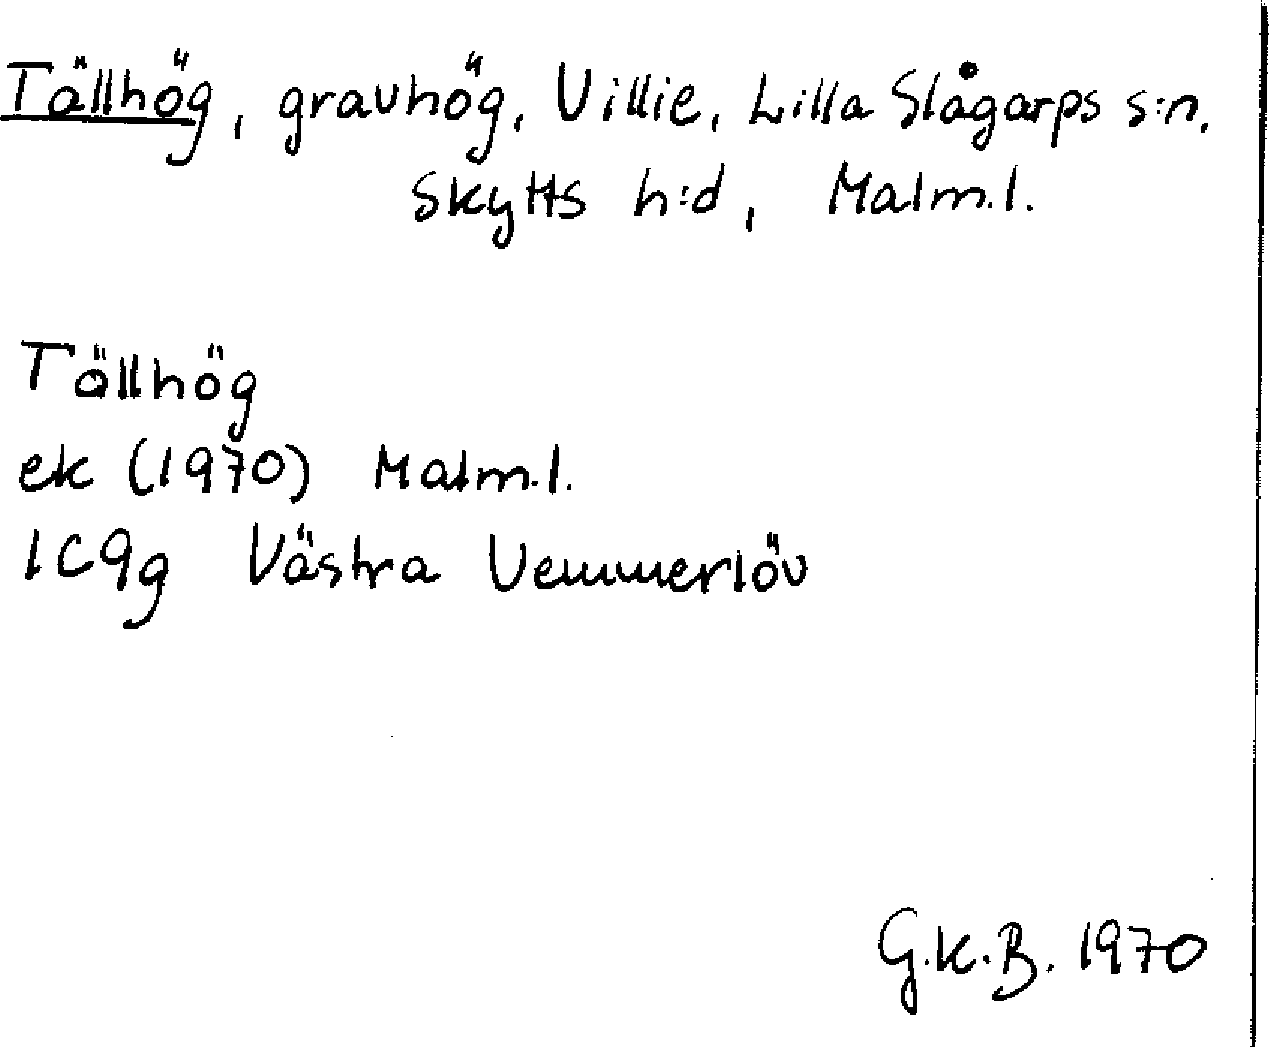 Tällhög, gravhög, Villie, Lilla Slågarps s:n,
Skytts h:d, Malm.l.
Tällhög
ek (1970) Malm.l.
1C9g Västra Vemmerlöv
G.K.B. 1970